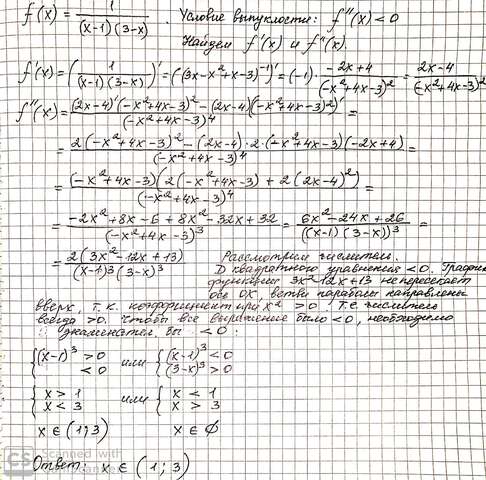 f(x) = 1/((x-1)(3-x)). Условие выпуклости: f''(x) < 0
Найдем f'(x) и f''(x).
f'(x) = (1/((x-1)(3-x)))' = ((3x-x²+x-3)⁻¹)' = (-1)·(-2x+4)/(-x²+4x-3)² = (2x-4)/(-x²+4x-3)²
f''(x) = ((2x-4)'(-x²+4x-3)² - (2x-4)((-x²+4x-3)²)')/(-x²+4x-3)⁴ =
= (2(-x²+4x-3)² - (2x-4)·2·(-x²+4x-3)(-2x+4))/(-x²+4x-3)⁴ =
= ((-x²+4x-3)(2(-x²+4x-3) + 2(2x-4)²))/(-x²+4x-3)⁴ =
= (-2x²+8x-6+8x²-32x+32)/(-x²+4x-3)³ = (6x²-24x+26)/((x-1)(3-x))³ =
= 2(3x²-12x+13)/((x-1)³(3-x)³) Рассмотрим числитель.
D квадратного уравнения < 0. График
функции 3x²-12x+13 не пересекает
ось OX, ветви параболы направлены
вверх, т.к. коэффициент при x² > 0. Т.е. числитель
всегда > 0. Чтобы все выражение было < 0, необходимо
знаменатель бы < 0:
{(x-1)³ > 0 или {(x-1)³ < 0
< 0 (3-x)³ > 0
{x > 1 или {x < 1
x < 3 x > 3
x ∈ (1;3) x ∈ ∅
CS Scanned with
CamScanner
Ответ: x ∈ (1; 3)